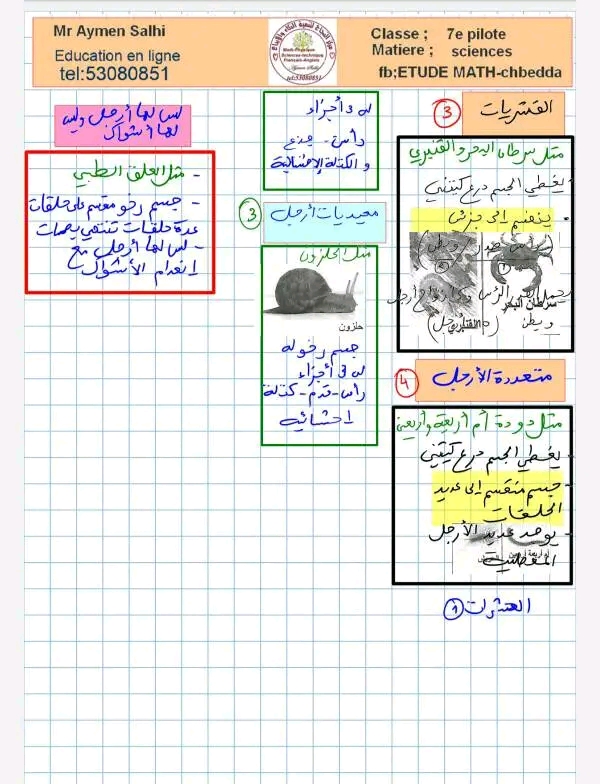 Mr Aymen Salhi
Education en ligne
tel:53080851
Classe ; 7e pilote
Matiere ; sciences
fb;ETUDE MATH-chbedda
مركز النجاح للتنمية البناء والإبداع
Math-Physique
Sciences-technique
Français-Anglais
Aymen Salhi
tel:53080851
القشريات
3
مثل سرطان البحر والقنيري
يغطي الجسم درع كيتيني
ينقسم إلى جزئين
سرطان البحر
وبطن
متعددة الأرجل
4
مثل دودة أم أربعة وأربعين
- يغطي الجسم درع كيتيني
- جسم منقسم إلى عديد
الحلقات
- يوجد عديد الأرجل
المفصلية
الحشرات 1
له 3 أجزاء
رأس - جذع
و الكتلة الإحشائية
معديات أرجل
3
مثل الحلزون
حلزون
جسم رخو له
له 3 أجزاء
رأس - قدم - كتلة
احشائية
ليس لها أرجل وليس
لها أشواك
- مثل العلق الطبي
- جسم رخو مقسم على حلقات
عدة حلقات تنتهي
- ليس لها أرجل مع
انعدام الأشواك